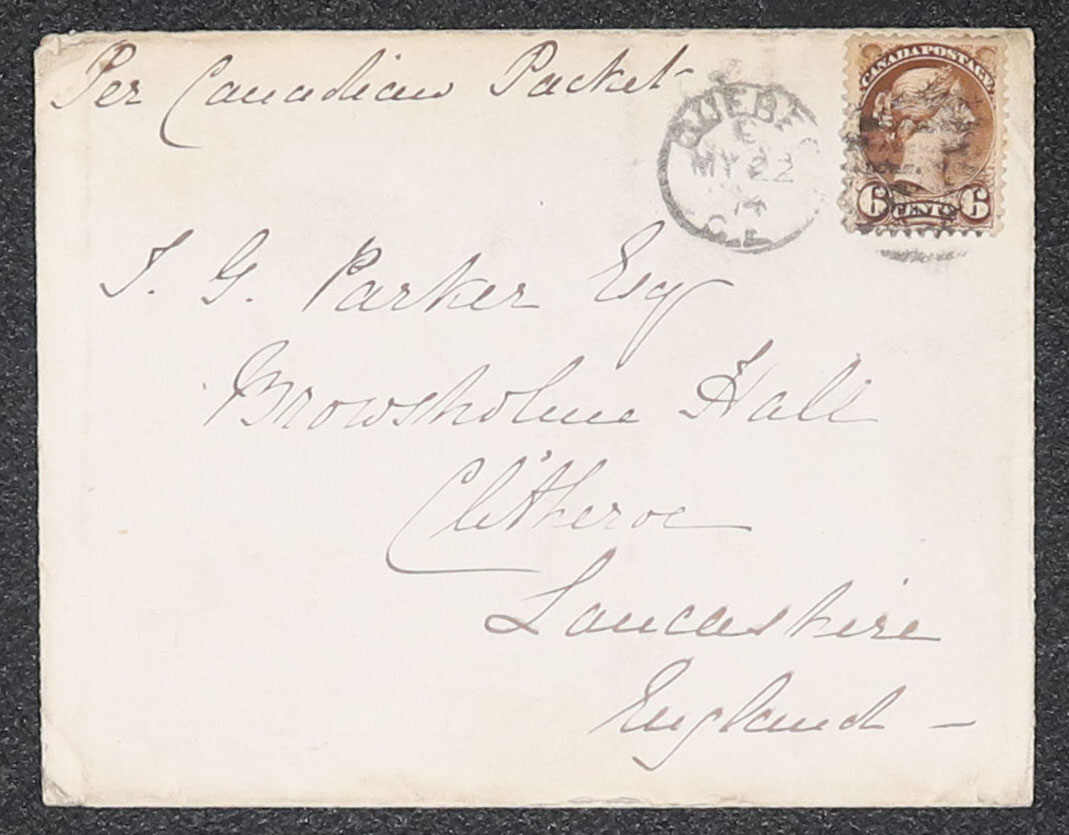 Per Canadian Packet
QUEBEC
E
MY 22
74
C.E
CANADA POSTAGE
6 CENTS 6
T. G. Parker Esq
Browsholme Hall
Clitheroe
Lancashire
England –